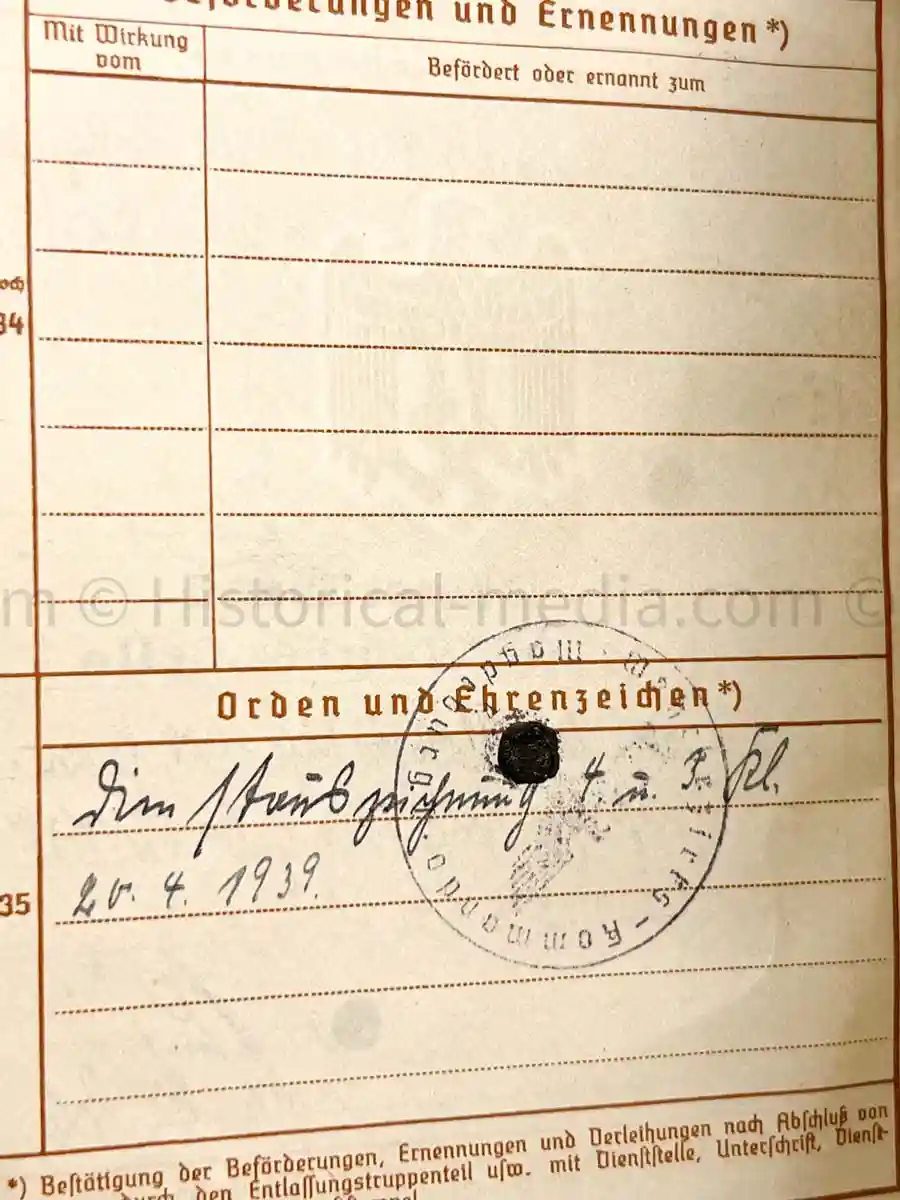 Beförderungen und Ernennungen *)
Mit Wirkung
vom
Befördert oder ernannt zum
34
m © Historical-media.com ©
Orden und Ehrenzeichen *)
Dienstauszeichnung 4. u. 3. Kl.
20. 4. 1939.
35
Magdeburg
Kommando
*) Bestätigung der Beförderungen, Ernennungen und Verleihungen nach Abschluß von
durch den Entlassungstruppenteil usw. mit Dienststelle, Unterschrift, Dienst-